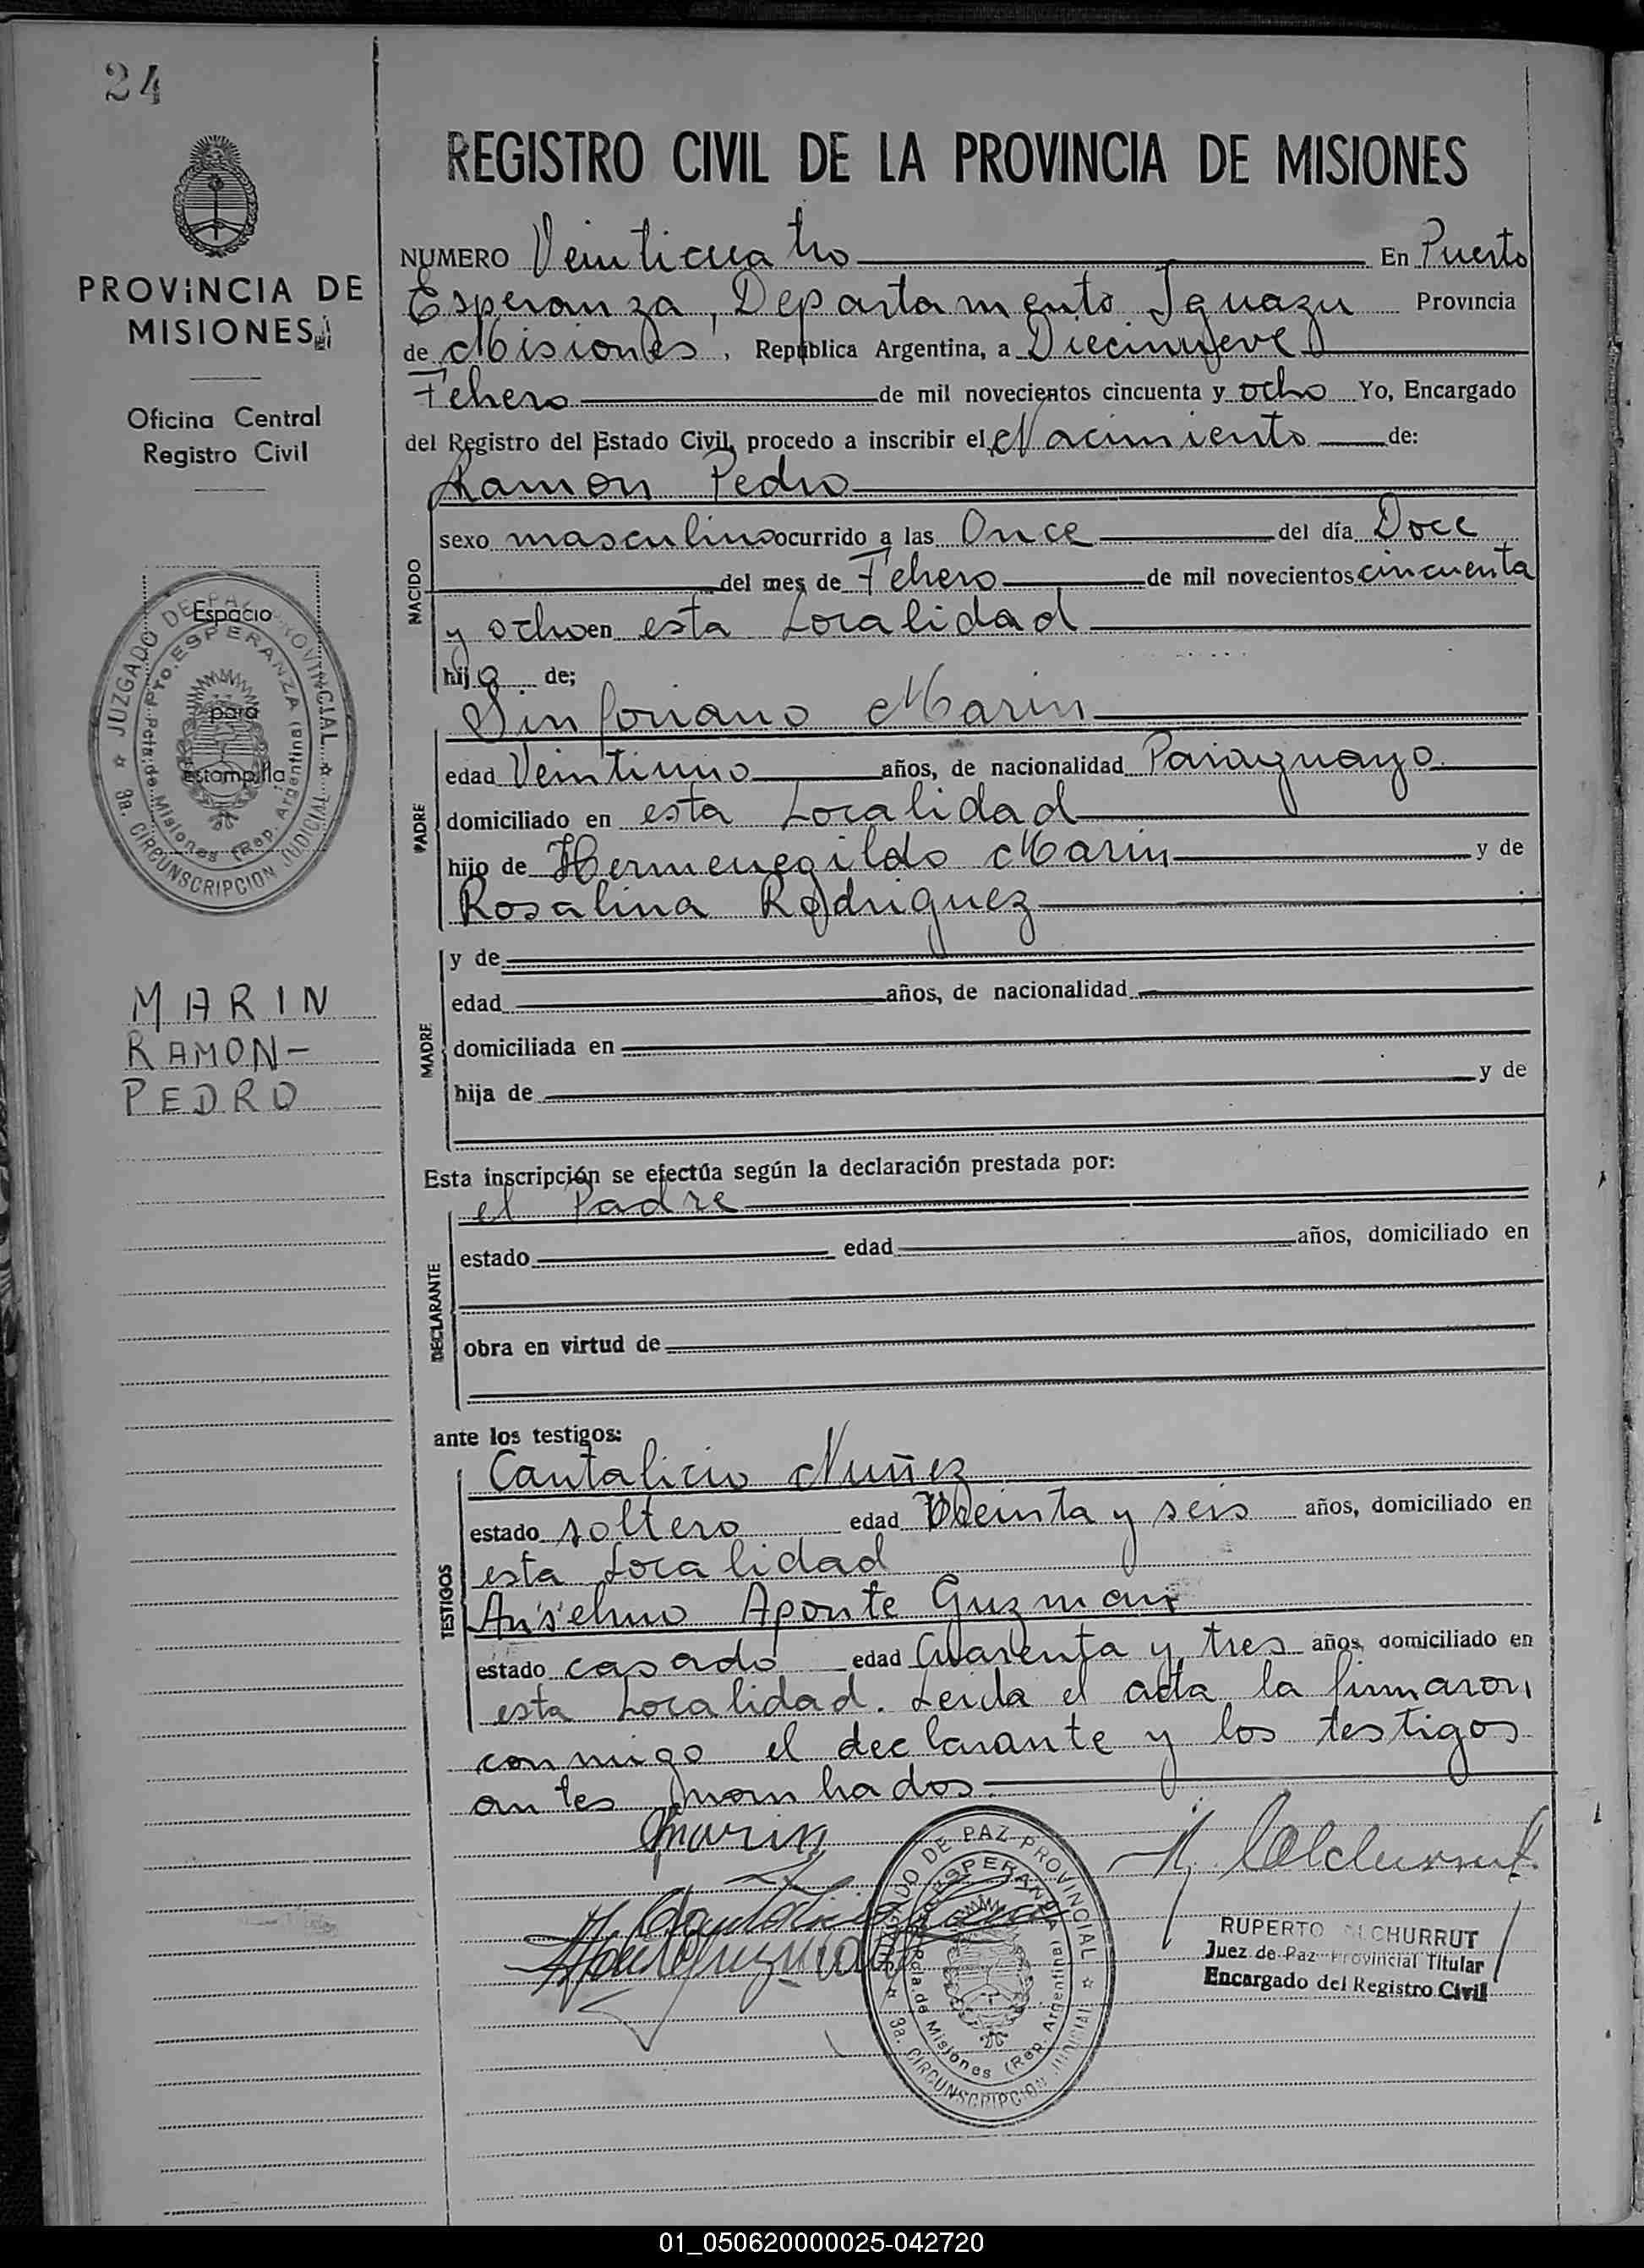 24
REGISTRO CIVIL DE LA PROVINCIA DE MISIONES
PROVINCIA DE
MISIONES
Oficina Central
Registro Civil
NUMERO Veinticuatro En Puerto
Esperanza, Departamento Iguazu Provincia
de Misiones, República Argentina, a Diecinueve
Febrero de mil novecientos cincuenta y ocho Yo, Encargado
del Registro del Estado Civil, procedo a inscribir el Nacimiento de:
Ramon Pedro
NACIDO
sexo masculino ocurrido a las Once del día Doce
del mes de Febrero de mil novecientos cincuenta
y ocho en esta Localidad
hijo de;
Espacio
para
estampilla
JUZGADO DE PAZ PROVINCIAL
Pto. ESPERANZA
Pcia. de Misiones (Rep. Argentina)
3a. CIRCUNSCRIPCION JUDICIAL
PADRE
Sinforiano Marin
edad Veintiuno años, de nacionalidad Paraguayo
domiciliado en esta Localidad
hijo de Hermenegildo Marin y de
Rosalina Rodriguez
MARIN
RAMON-
PEDRO
MADRE
y de
edad años, de nacionalidad
domiciliada en
hija de y de
Esta inscripción se efectúa según la declaración prestada por:
el Padre
DECLARANTE
estado edad años, domiciliado en
obra en virtud de
ante los testigos:
TESTIGOS
Cantalicio Nuñez
estado soltero edad Treinta y seis años, domiciliado en
esta Localidad
Anselmo Aponte Guzman
estado casado edad Cuarenta y tres años, domiciliado en
esta Localidad. Leida el acta la firmaron,
conmigo el declarante y los testigos
antes
Marin
JUZGADO DE PAZ PROVINCIAL
ESPERANZA
Pcia. de Misiones (Rep. Argentina)
3a. CIRCUNSCRIPCION JUDICIAL
RUPERTO CHURRUT
Juez de Paz Provincial Titular
Encargado del Registro Civil
01_050620000025-042720